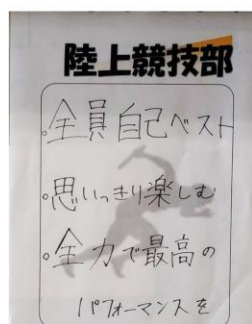 陸上競技部
。全員自己ベスト
。思いっきり楽しむ
。全力で最高の
パフォーマンスを